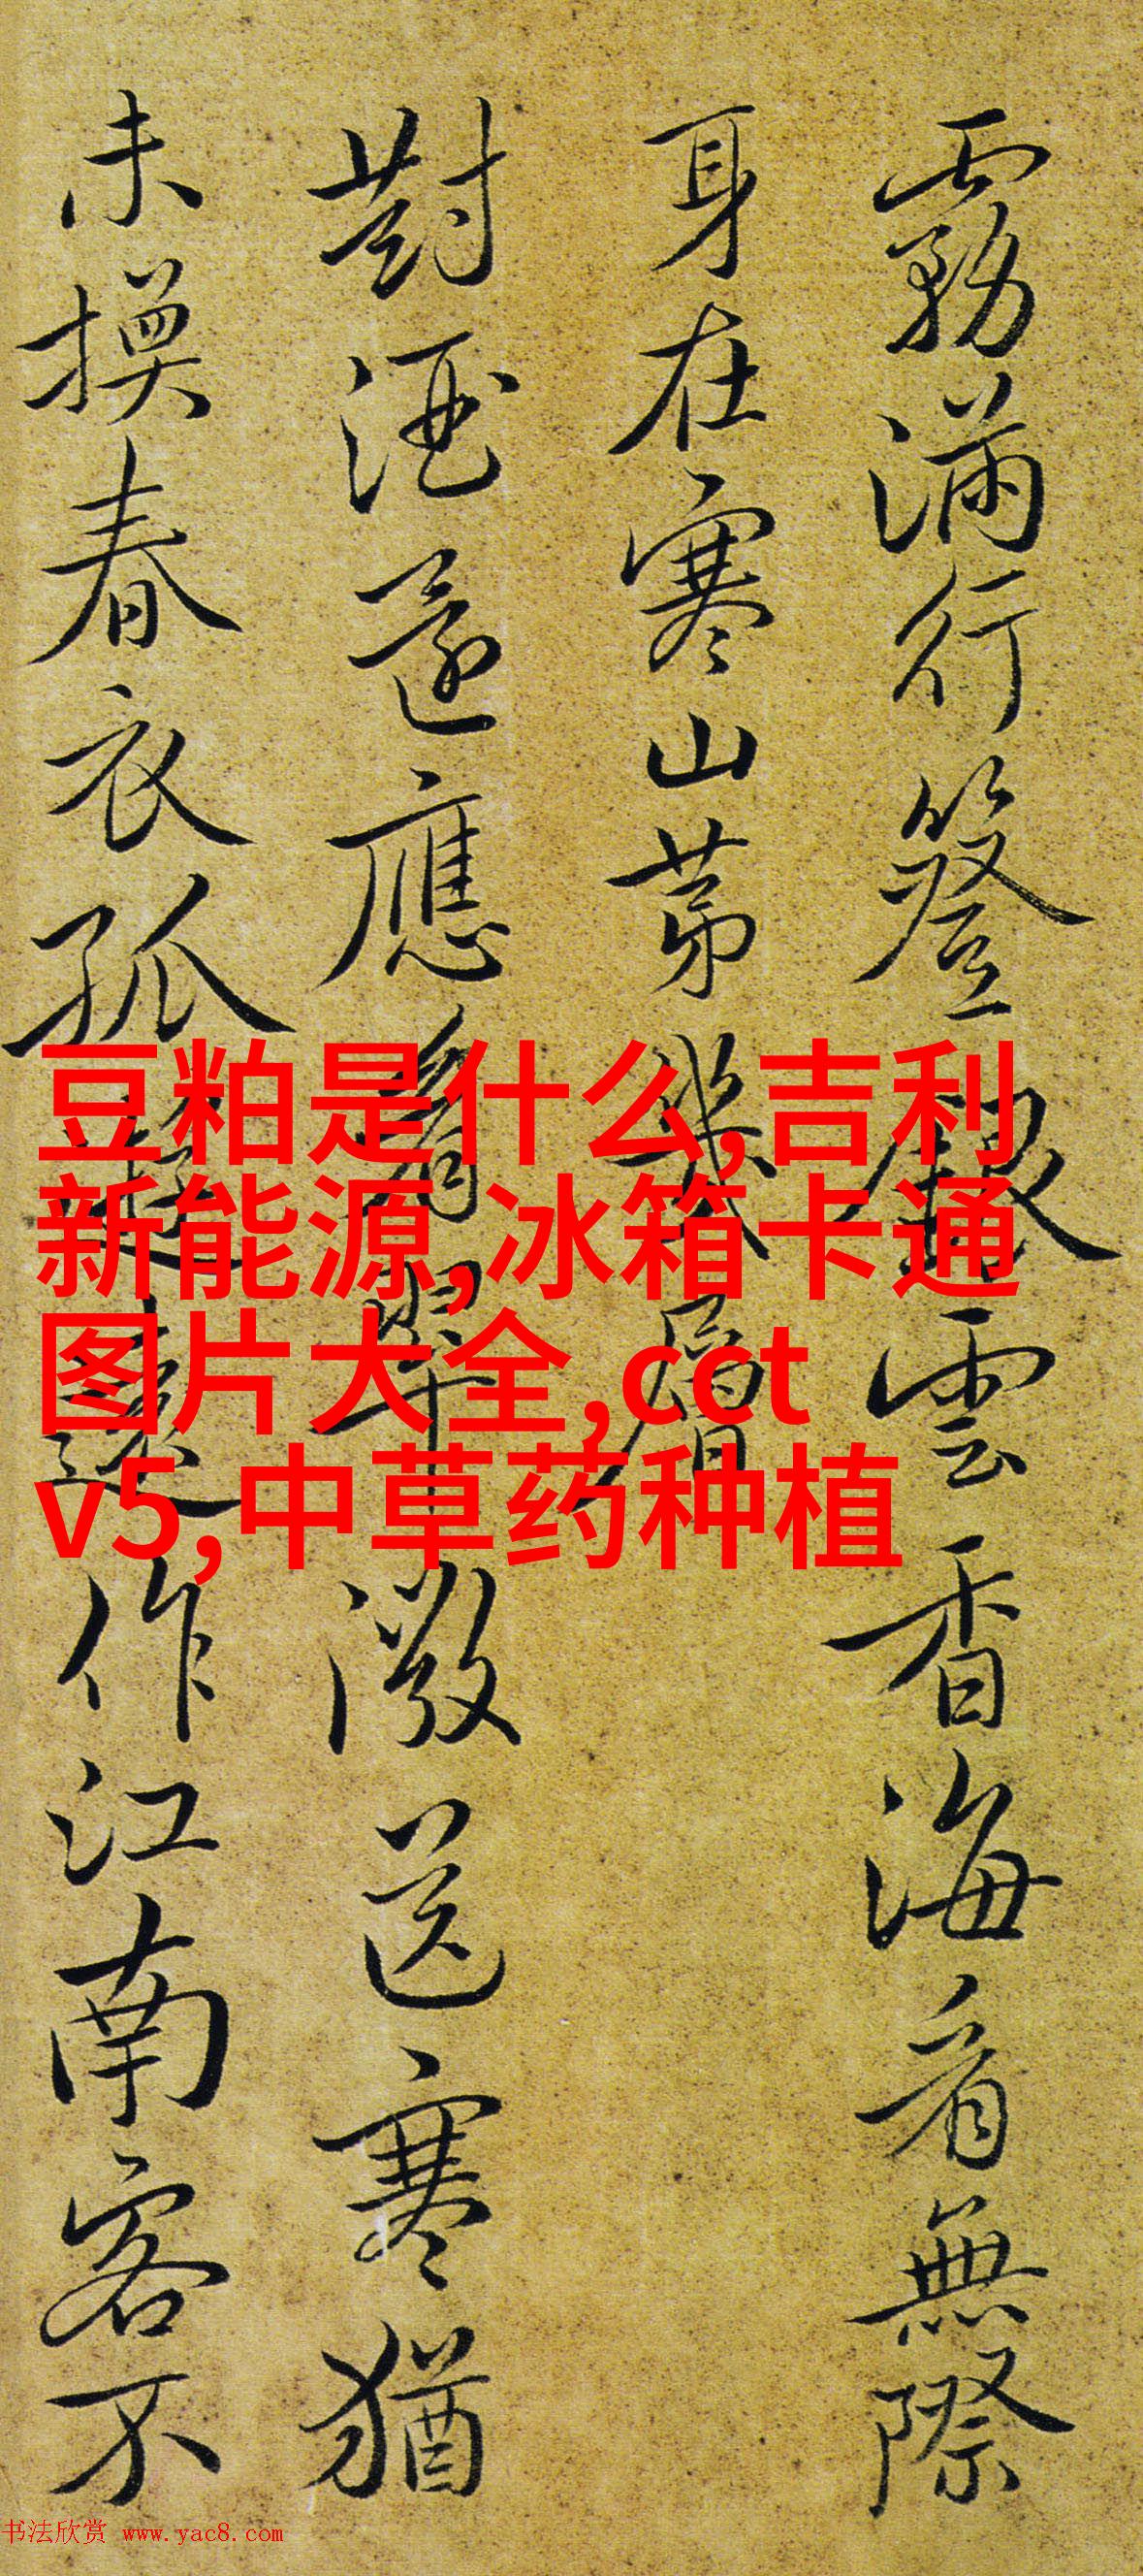 霧滿行簦雲香海看無際
身在寒山第幾層
對酒還應看翠送寒猶
未換春衣孤遠作江南客不
豆粕是什么,吉利
新能源,冰箱卡通
图片大全,cct
v5,中草药种植
书法欣赏 www.yac8.com